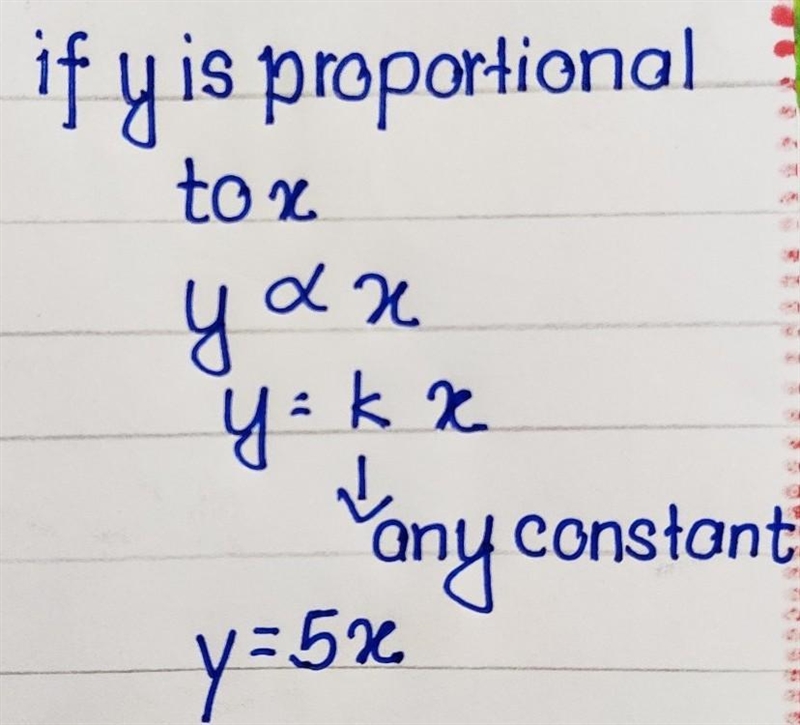 if y is proportional
to x
y ∝ x
y = k x
↓
any constant
y = 5x